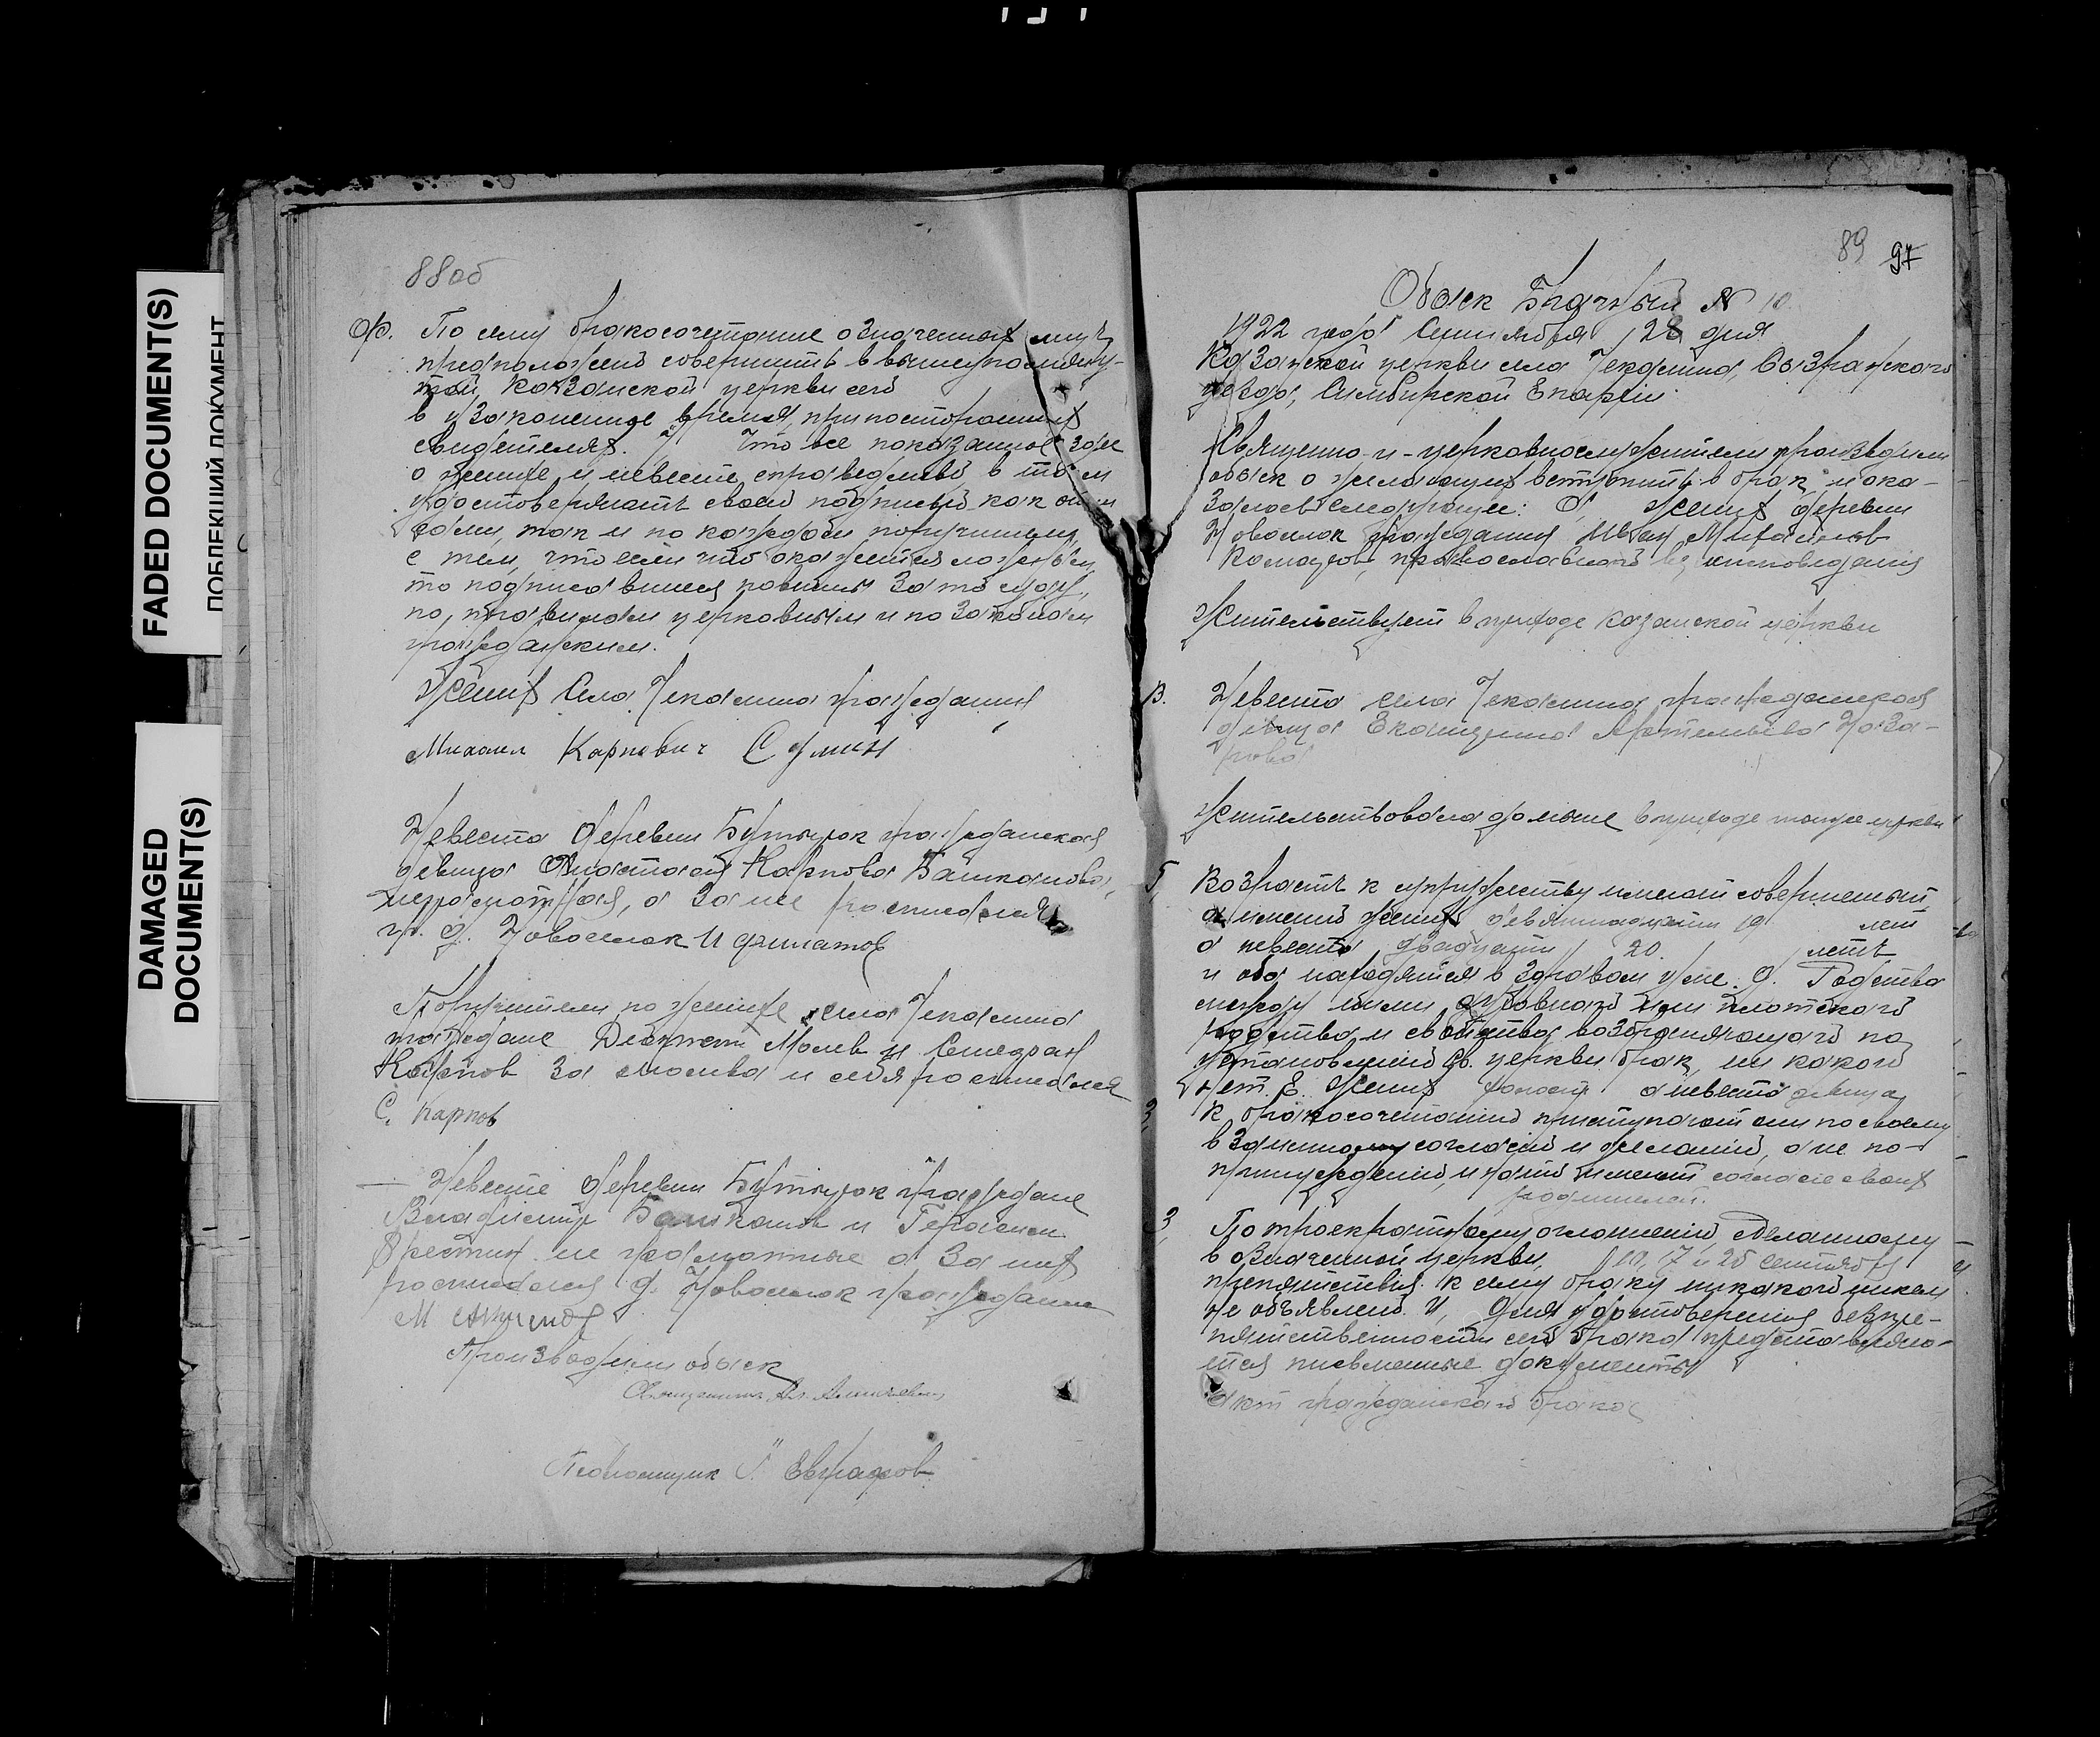 FADED DOCUMENT(S)
ПОБЛЕКШИЙ ДОКУМЕНТ
DAMAGED
DOCUMENT(S)
88об
Ф. По сему бракосочетание означенных лиц
предположено совершить в вышеупомяну-
той Казанской церкви сей
в узаконенное время, при посторонних
свидетелях. Что все показанное здесь
о женихе и невесте справедливо в том
удостоверяют своею подписью как они
сами, так и по каждом поручители,
с тем, что если что окажется ложным,
то подписавшиеся повинны за то суду,
по правилам церковным и по законам
гражданским.
Жених Села Чекалина гражданин
Михаил Карпович
Невеста деревни Бутырок гражданская
девица Карпова Башканова,
неграмотная, а за нее расписался
гр. д. Новоселок И Филатов
Поручители по женихе села Чекалина
граждане Молев и
Карпов За и себя расписался
С. Карпов
— Невесте деревни Бутырок граждане
Владимир и Герасим
не грамотные а за них
расписался д. Новоселок гражданин
М
Производили обыск
Священник Ал.
Псаломщик Евграфов
89 97
Обыск Брачный № 10
1922 года Сентября 28 дня
Казанской церкви села Чекалина, Сызранского
уезда, Симбирской Епархии
Священно-и-церковнослужители производили
обыск о желающих вступить в брак, и ока-
залось следующее: Жених деревни
Новоселок гражданин Иван Михайлов
православного исповедания
Жительствует в приходе Казанской церкви
В. Невеста села Чекалина гражданская
девица Екатерина Артемьева Наза-
рова
Жительствовала доныне в приходе той же церкви
Г, Возраст к супружеству имеют совершенный,
а именно жених девятнадцати 19 лет
а невеста двадцати 20. летъ
и оба находятся в здравом уме. Д. Родства
между ними духовного или плотского
родства и свойства возбраняющаго по
установлению св. церкви брак, ни какого
нет. Е. Жених холост а невеста девица
К бракосочетанию приступают они по своему
взаимному согласию и желанию, а не по
принуждению и на то имеют согласие своих
родителей.
З, По троекратному оглашению, сделанному
в означенной церкви, 10, 17 и 25 сентября
препятствия к сему браку никакого никем
не объявлено. И, Для удостоверения безпре-
пятственности сего брака представляю-
тся письменные документы
акт гражданскаго брака